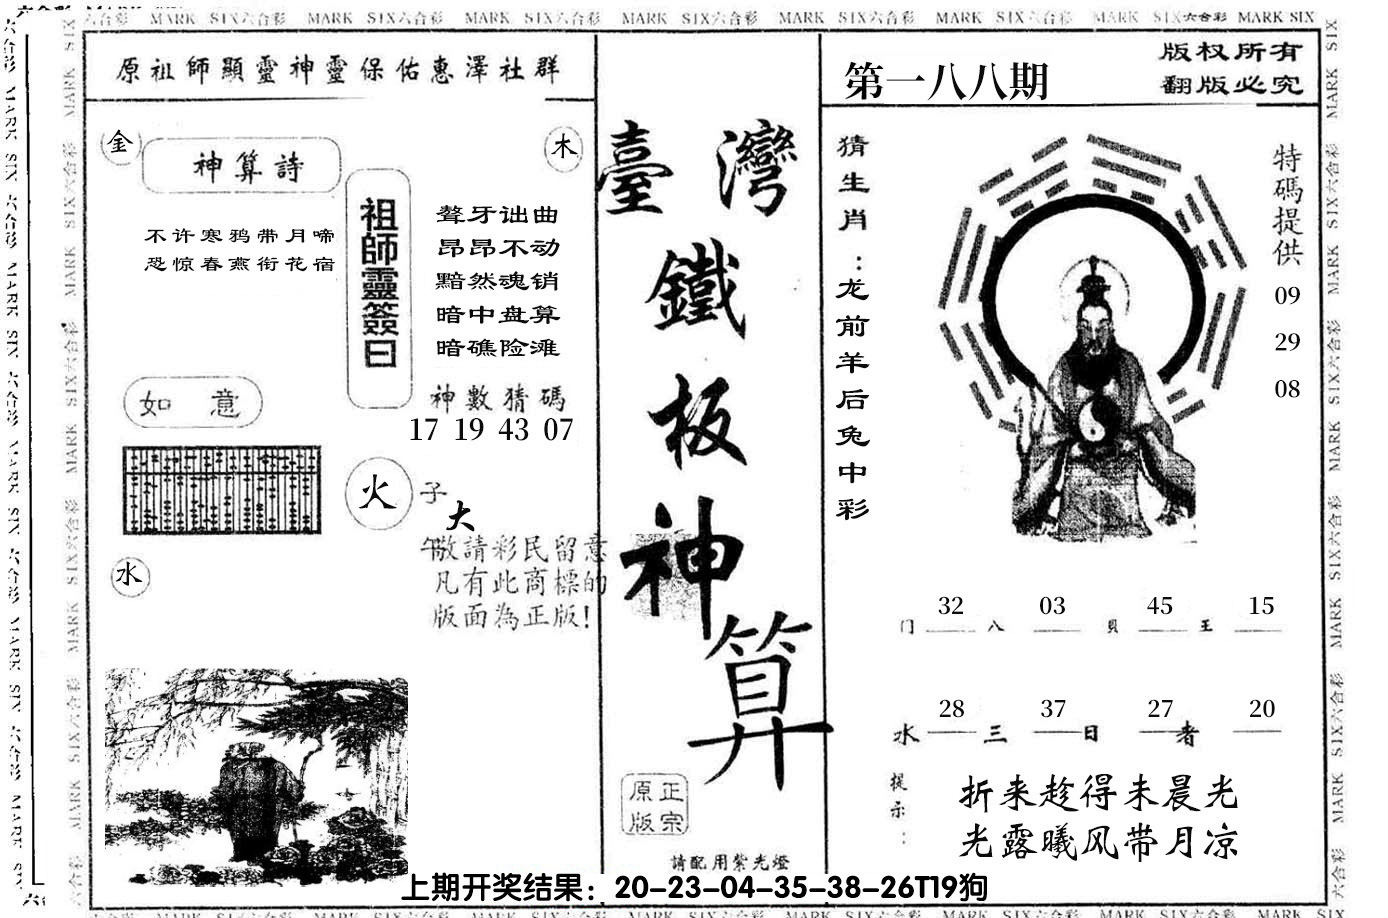 六合彩 MARK SIX六合彩 MARK SIX六合彩 MARK SIX六合彩 MARK SIX六合彩 MARK SIX六合彩 MARK SIX六合彩 MARK SIX六合彩 MARK SIX
原祖師顯靈神靈保佑惠澤社群
金
木
神算詩
不许寒鸦带月啼
恐惊春燕衔花宿
祖師靈簽曰
聱牙诎曲
昂昂不动
黯然魂销
暗中盘算
暗礁险滩
神數猜碼
17 19 43 07
如意
火
水
子
大
午
敬請彩民留意
凡有此商標的
版面為正版!
臺灣
鐵
板
神
算
正宗
原版
請配用紫光燈
第一八八期
版权所有
翻版必究
猜生肖:龙前羊后兔中彩
特碼提供
09
29
08
32 03 45 15
门 八 貝 王
28 37 27 20
水 三 日 者
提示:
折来趁得未晨光
光露曦风带月凉
上期开奖结果：20-23-04-35-38-26T19狗